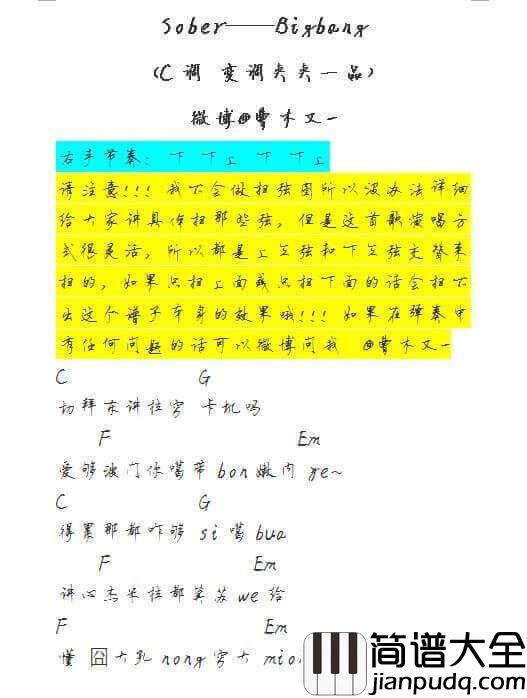 Sober——Bigbang
(C调 变调夹夹一品)
微博@曹木又一
右手节奏: 下 下上 下 下上
请注意!!! 我不会做扫弦图所以没办法详细
给大家讲具体扫那些弦, 但是这首歌演唱方
式很灵活, 所以都是上三弦和下三弦交替来
扫的, 如果只扫上面或只扫下面的话会扫不
出这个谱子本身的效果哦!!! 如果在弹奏中
有任何问题的话可以微博问我 @曹木又一
C G
切拜东讲拉穷 卡机吗
F Em
爱够波门你噶带 bon 嫩内 ye~
C G
得累那都咋够 si 噶 bua
F Em
讲心杰米拉都莫苏 we 给
F Em
懂 囧大孔 nong 穷大
简谱大全
jianpudq.com